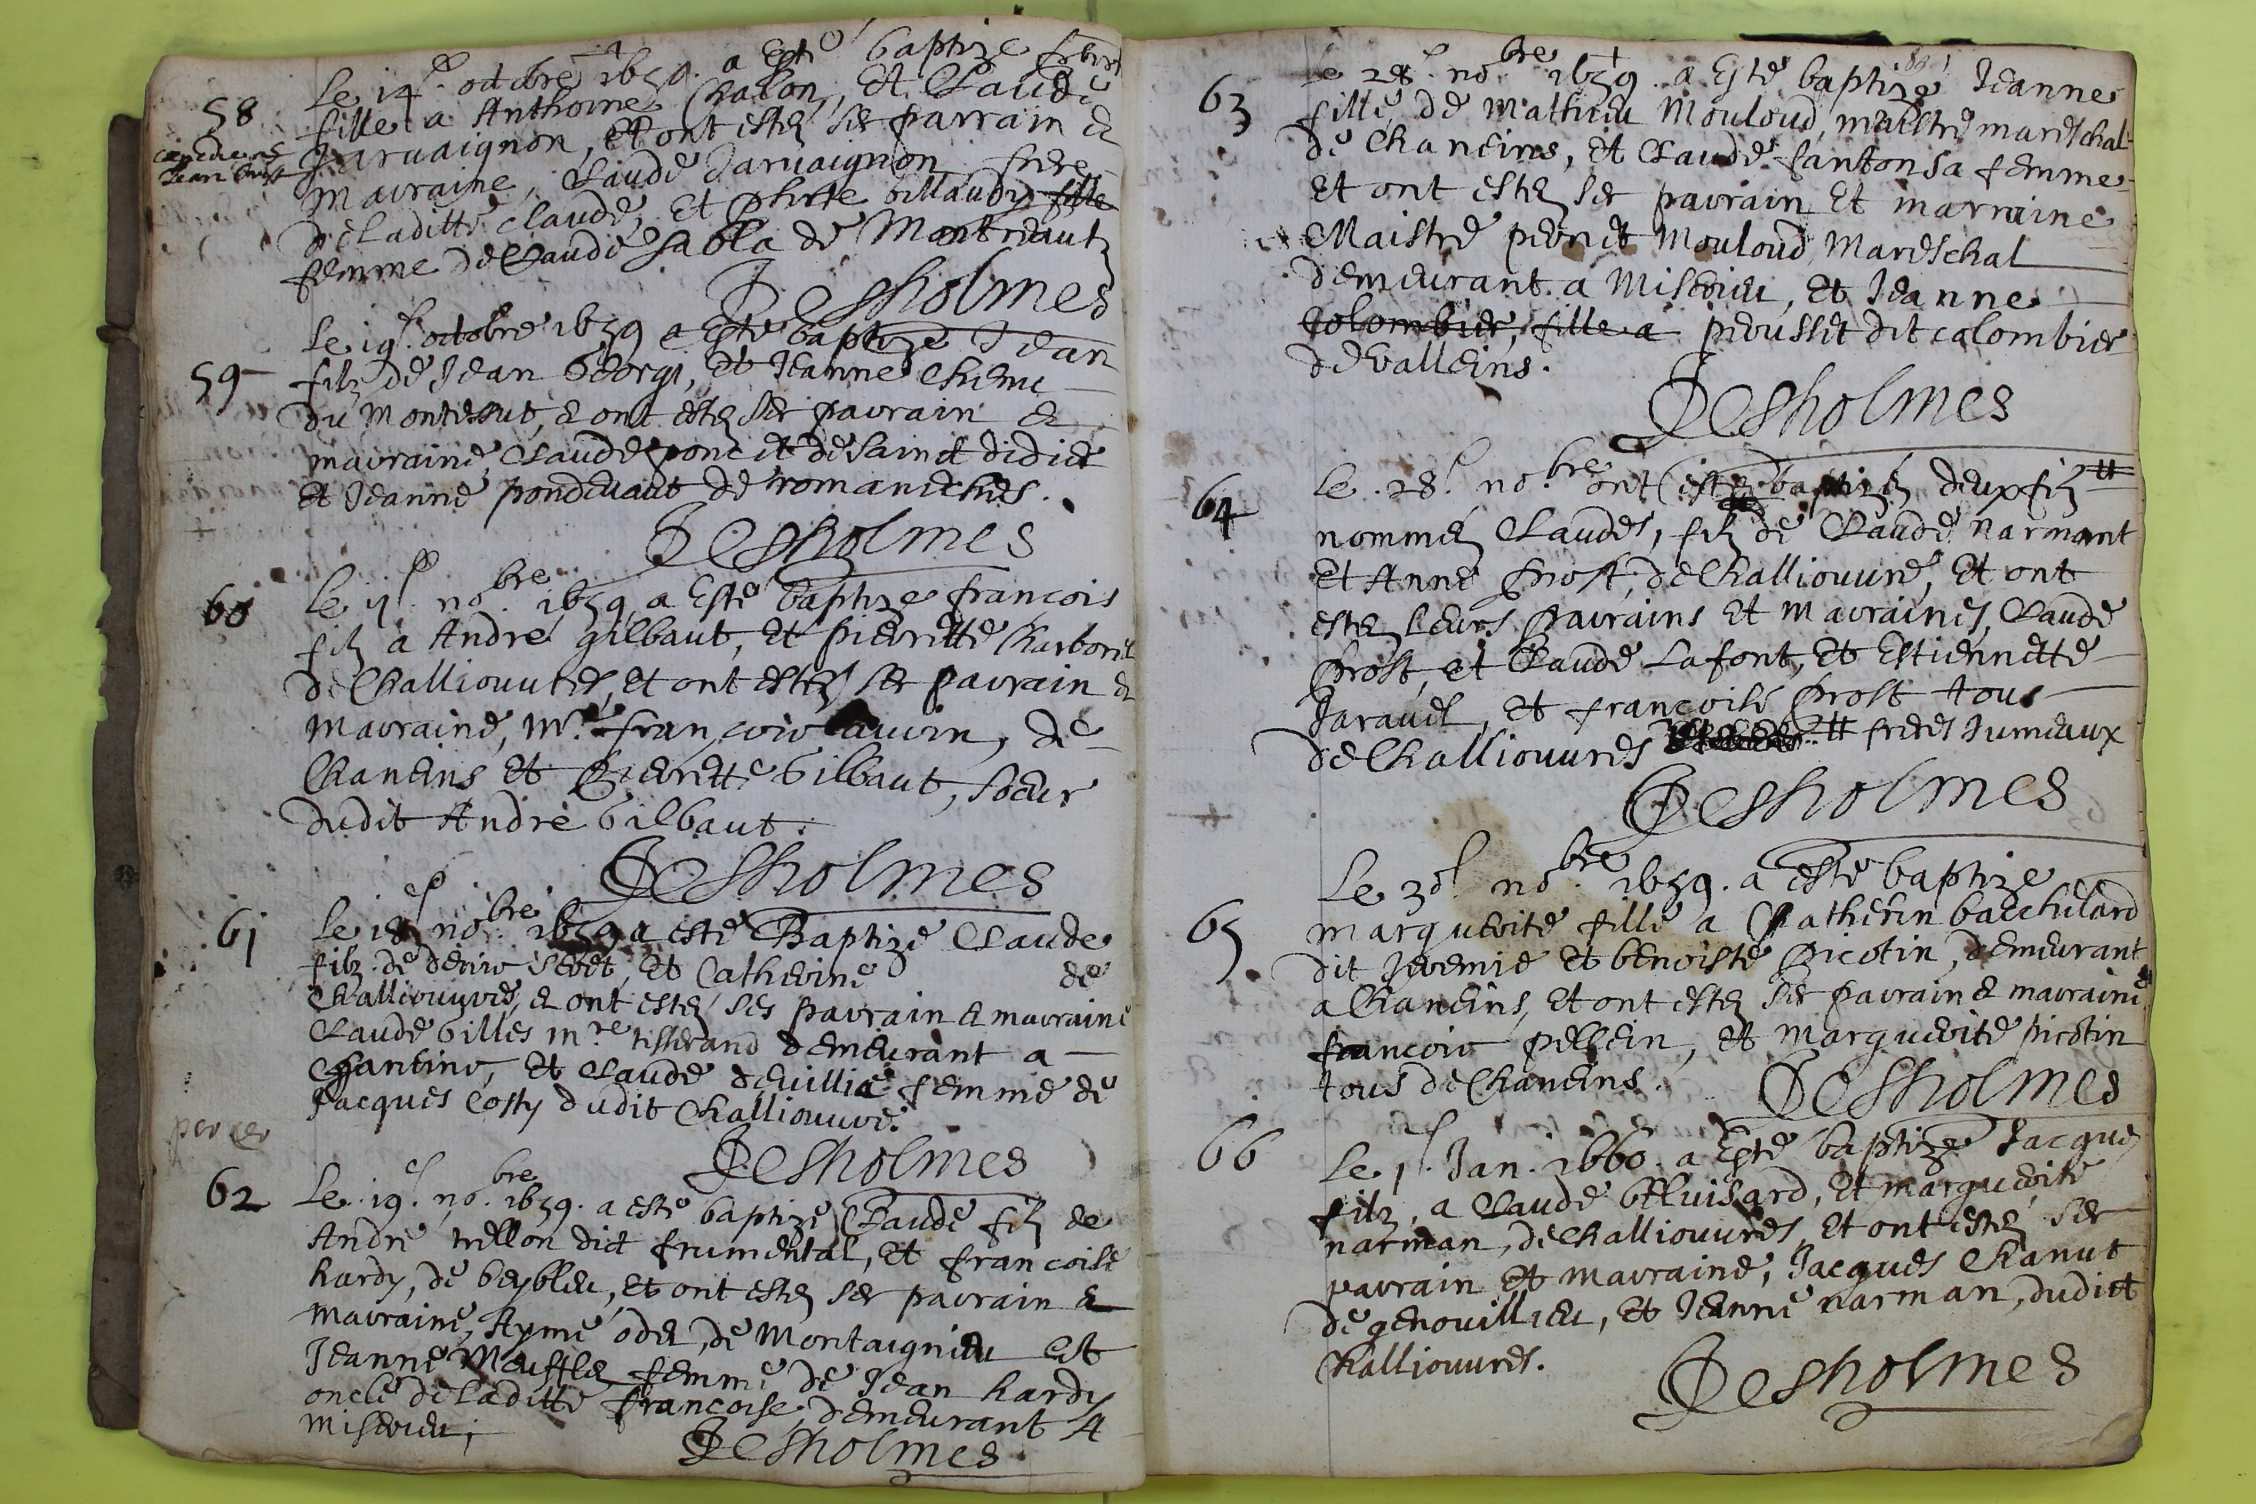 58
Le 14e. octobre 1659. a esté baptize
fille a Anthoine Chalon, et Claude
Jarvaignon, et ont estez ses parrain et
marraine, Claude Jarvaignon frere
de laditte Claude, et billaudy fille
femme de Claude Sabla de Montceaux
Desholmes
59
Le 19e. octobre 1659 a esté baptize Jean
filz de Jean Georgi, et Jeanne
du Montessut, et ont estez ses parrain et
marraine, Claude poncet de Sainct didier
et Jeanne pondevaut de romaneches.
Desholmes
60
Le no.bre 1659 a esté baptize françois
filz a André gilbaut, et pierrette Charbonet
de Challiouvres, et ont estez ses parrain et
marraine, Mre. françois auvin, de
Chaneins et Pierrette Gilbaut, soeur
dudit André Gilbaut.
Desholmes
61
Le 18e. no.bre 1659 a esté Baptize Claude
filz de denis Seret, et Catherine de
Challiouvre, et ont estez ses parrain et marraine
Claude Gilles mre tisserand demeurant a
Chaneins, et Claude femme de
Jacques Costy dudit Challiouvre.
Desholmes
62
Le 19e. no.bre 1659. a esté baptizé Claude filz de
André trellon dict frumental, et françoise
hardy, de beybleu, et ont estez ses parrain et
marraine, Aymé odet, de Montaignieu et
Jeanne femme de Jean hardy
oncle de laditte françoise, demeurant A
Miserieu;
Desholmes
63
Le 28e. no.bre 1659 a esté baptize Jeanne
fille de Mathieu Mouloud, maistre mareschal
de Chaneins, et Claude fanton sa femme
et ont estez ses parrain et marraine
Maistre perrit Mouloud Mareschal
demeurant a Miserieu, et Jeanne
Colombier, fille a peroussit dit colombier
de valleins.
Desholmes
64
Le 28e. no.bre ont estez baptizez deux filz #
nommez Claudes, filz de Claude narmant
et Anne Prost, de Challiouvre, et ont
estez leurs parrains et marraines, Claude
Prost, et Claude Lafont, et Estiennette
Jaraud, et françoise Prost tous
de Challiouvres # freres Jumeaux
Desholmes
65
Le 30e no.bre 1659. a esté baptize
marguerite fille a Catherin bacchelard
dit Jeremie et benoiste Picotin, demeurant
a Chaneins, et ont estez ses parrain et marraine
françois pellein, et marguerite picotin
tous de Chaneins.
Desholmes
66
Le 1e. Jan. 1660. a esté baptize Jacques
filz, a Claude belluisard, et marguerite
narman, de Challiouvres, et ont estez ses
parrain et marraine, Jacques Chanut
de genouillieu, et Jeanne narman, dudict
Challiouvres.
Desholmes